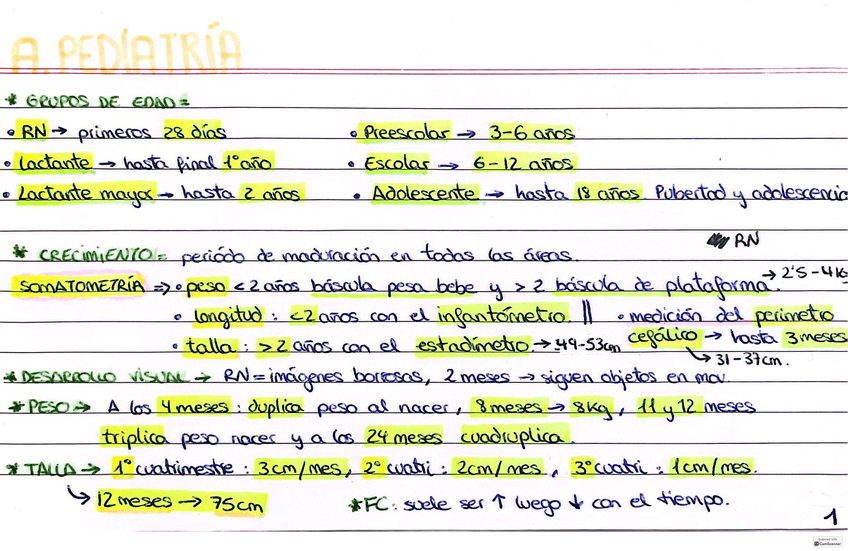 A. PEDIATRÍA
* GRUPOS DE EDAD =
• RN → primeros 28 días
• Preescolar → 3-6 años
• Lactante → hasta final 1º año
• Escolar → 6-12 años
• Lactante mayor → hasta 2 años
• Adolescente → hasta 18 años. Pubertad y adolescencia
RN
* CRECIMIENTO = periódo de maduración en todas las áreas.
SOMATOMETRÍA => • peso < 2 años báscula pesa bebe y > 2 báscula de plataforma. → 2'5 - 4 KG
• longitud : < 2 años con el infantómetro. || • medición del perimetro
• talla : > 2 años con el estadímetro. → 49-53cm cefálico → hasta 3 meses
↳ 31-37cm.
* DESARROLLO VISUAL → RN = imágenes borrosas, 2 meses → siguen objetos en mov.
* PESO → A los 4 meses : duplica peso al nacer, 8 meses → 8Kg, 11 y 12 meses
triplica peso nacer y a los 24 meses cuadruplica.
* TALLA → 1º cuatrimestre : 3cm/mes, 2º cuatri : 2cm/mes, 3º cuatri : 1cm/mes.
↳ 12 meses → 75cm
* FC : suele ser ↑ luego ↓ con el tiempo.
1
CamScanner